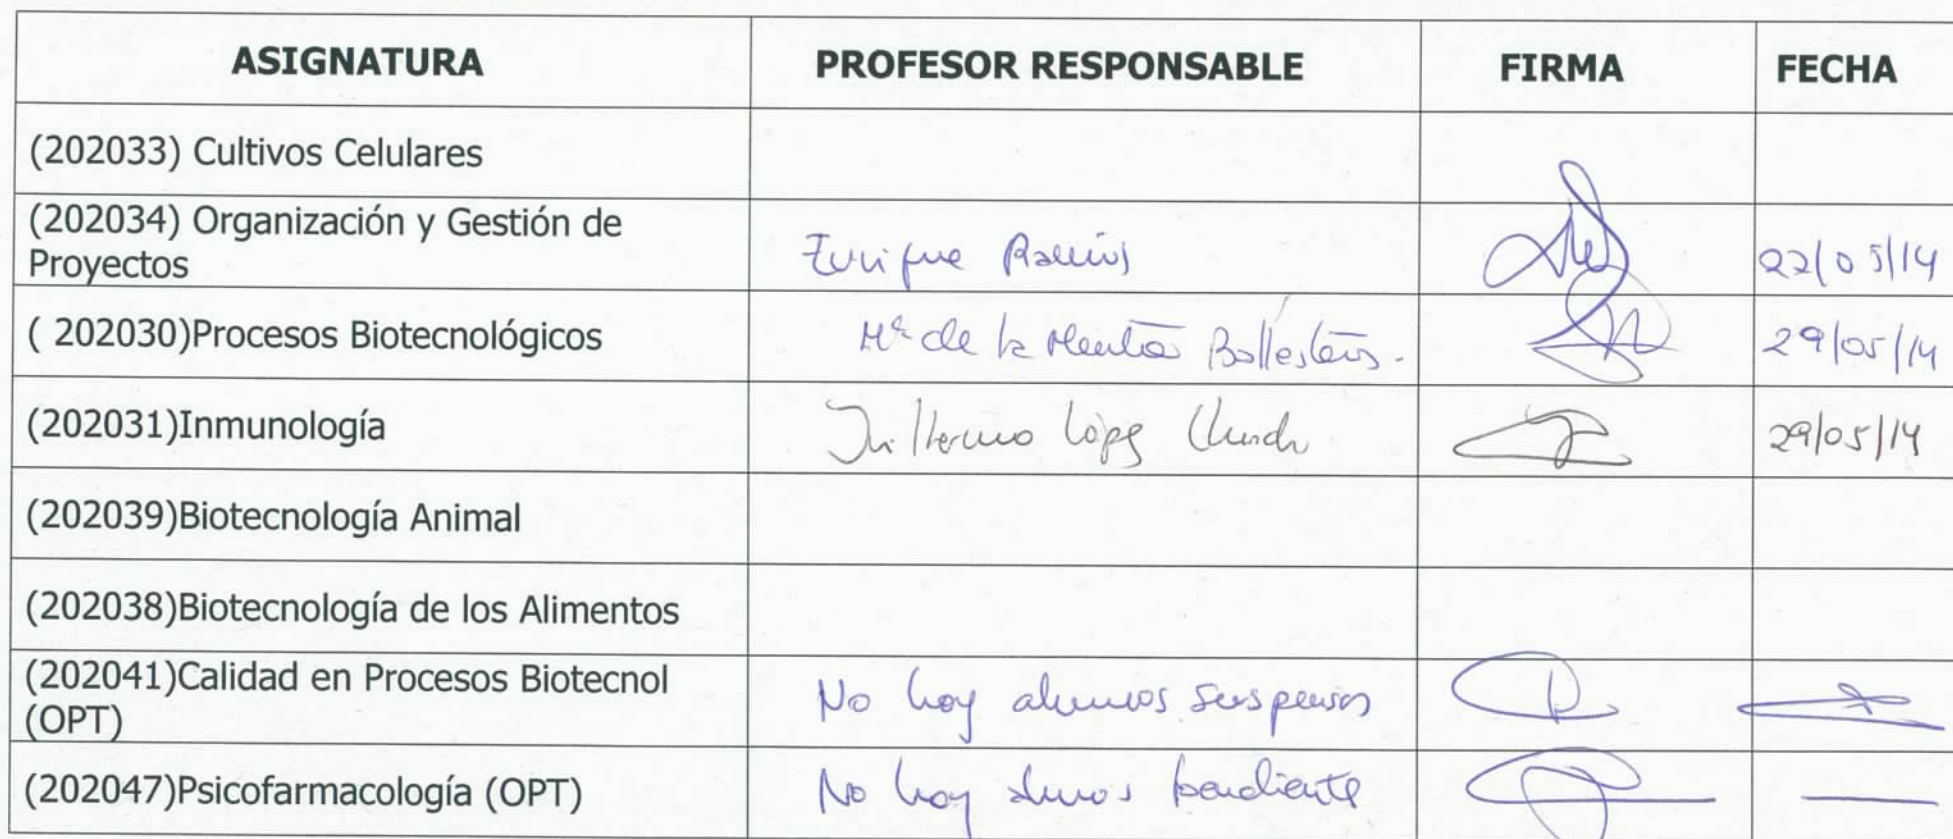 ASIGNATURA PROFESOR RESPONSABLE FIRMA FECHA
(202033) Cultivos Celulares
(202034) Organización y Gestión de
Proyectos
Enrique 22/05/14
( 202030)Procesos Biotecnológicos Mª de la Ballesteros. 29/05/14
(202031)Inmunología Guillermo López 29/05/14
(202039)Biotecnología Animal
(202038)Biotecnología de los Alimentos
(202041)Calidad en Procesos Biotecnol
(OPT)
No hay alumnos suspensos
(202047)Psicofarmacología (OPT) No hay pendiente